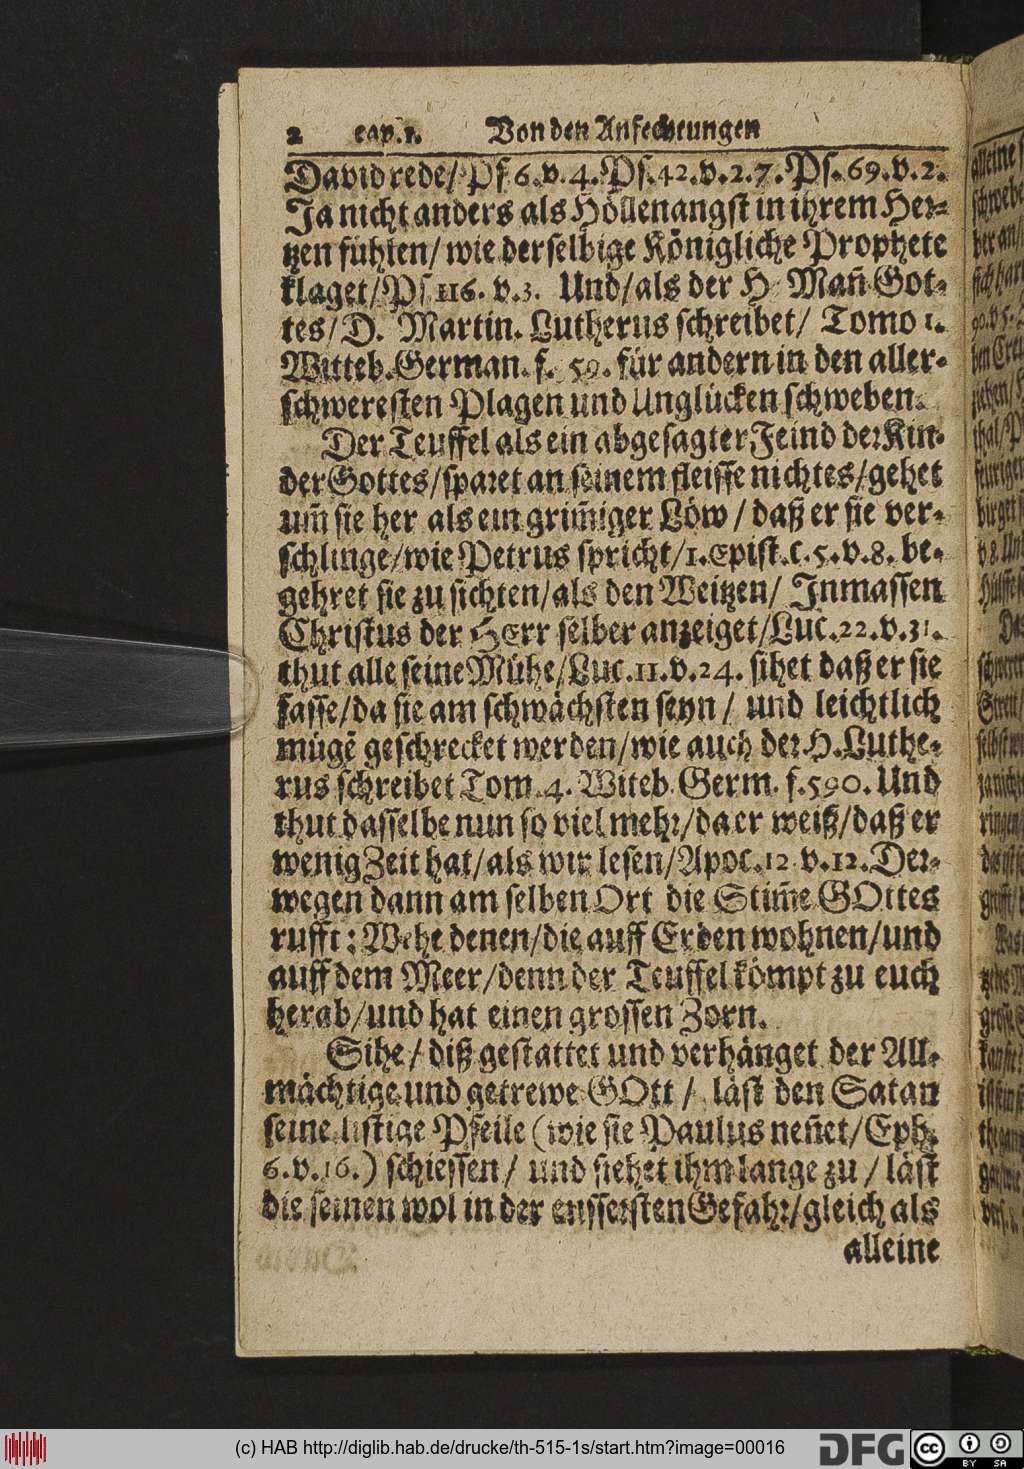 2 cap. 1. Von den Anfechtungen
David rede/ Ps 6. v. 4. Ps. 42. v. 2. 7. Ps. 69. v. 2.
Ja nicht anders als Höllenangst in ihrem Her-
tzen fühlen/ wie derselbige Königliche Prophete
klaget/ Ps 116. v. 3. Und/ als der H. Mañ Got-
tes/ D. Martin. Lutherus schreibet/ Tomo 1.
Witteb. German. f. 59. für andern in den aller-
schweresten Plagen und Unglücken schweben.
Der Teuffel als ein abgesagter Feind der Kin-
der Gottes/ sparet an seinem fleisse nichtes/ gehet
um̃ sie her als ein grim̃iger Löw/ daß er sie ver-
schlinge/ wie Petrus spricht/ 1. Epist. c. 5. v. 8. be-
gehret sie zu sichten/ als den Weitzen/ Inmassen
Christus der HErr selber anzeiget/ Luc. 22. v. 31.
thut alle seine Mühe/ Luc. 11. v. 24. sihet daß er sie
fasse/ da sie am schwächsten seyn/ und leichtlich
mügẽ geschrecket werden/ wie auch der H. Luthe-
rus schreibet Tom. 4. Witeb. Germ. f. 590. Und
thut dasselbe nun so viel mehr/ da er weiß/ daß er
wenig Zeit hat/ als wir lesen/ Apoc. 12 v. 12. Der-
wegen dann am selben Ort die Stim̃e GOttes
rufft: Wehe denen/ die auff Erden wohnen/ und
auff dem Meer/ denn der Teuffel kömpt zu euch
herab/ und hat einen grossen Zorn.
Sihe/ diß gestattet und verhänget der All-
mächtige und getrewe GOtt/ läst den Satan
seine listige Pfeile (wie sie Paulus neñet/ Eph.
6. v. 16.) schiessen/ und siehet ihm lange zu/ läst
die seinen wol in der eussersten Gefahr/ gleich als
alleine
(c) HAB http://diglib.hab.de/drucke/th-515-1s/start.htm?image=00016
DFG
cc
BY SA